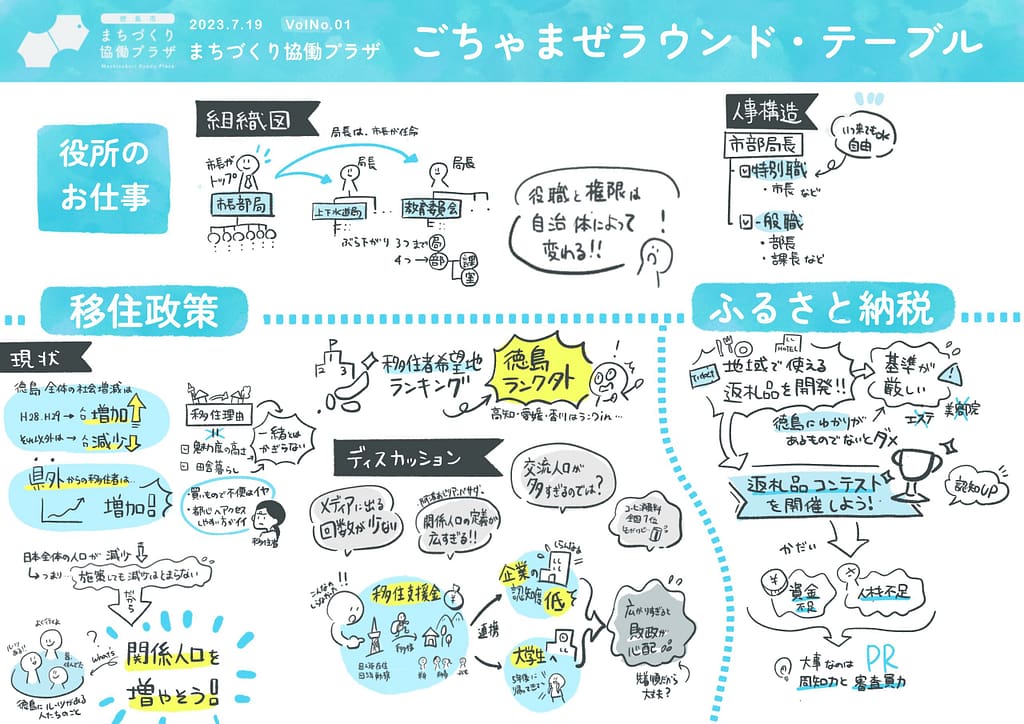 徳島市
まちづくり
協働プラザ
2023.7.19 VolNo.01
まちづくり協働プラザ
ごちゃまぜラウンド・テーブル
役所の
お仕事
組織図
局長は、市長が任命
市長が
トップ
局長
局長
市長部局
上下水道局
教育委員会
ぶら下がり 3つまで 局
4つ→ 部 課
室
役職と権限は
自治体によって
変わる!!
人事構造
いつ来てもok
自由
市部局長
特別職
・市長 など
一般職
・部長
・課長 など
移住政策
現状
徳島全体の社会増減は
H28.H29→人口増加
それ以外は→人口減少
県外からの移住者は…
増加!
移住理由
魅力度の高さ
田舎暮らし
一緒とは
かぎらない
・買いもので不便はイヤ
・都心へアクセス
しやすい方がイイ
移住者
日本全体の人口が減少
つまり…施策しても減少はとまらない
だから
what's
?
徳島にルーツがある
人たちのこと
関係人口を
増やそう!
移住者希望地
ランキング
徳島
ランク外
高知・愛媛・香川は ランクin…
ディスカッション
メディアに出る
回数が少ない
関係人口の定義が
広すぎる!!
交流人口が
多すぎるのでは?
全国7位
!!
移住支援金
連携
企業の
認知度 低
大学生へ
5年後に
帰ってきて
広がりすぎると
財政が
心配
大丈夫?
ふるさと納税
Ticket
HOTEL
地域で使える
返礼品を開発!!
基準が
厳しい
エステ 美容院
徳島にゆかりが
あるものでないとダメ
返礼品コンテスト
を開催しよう!
認知UP
かだい
資金
不足
人材も不足
大事なのは PR
周知力と 審査員力